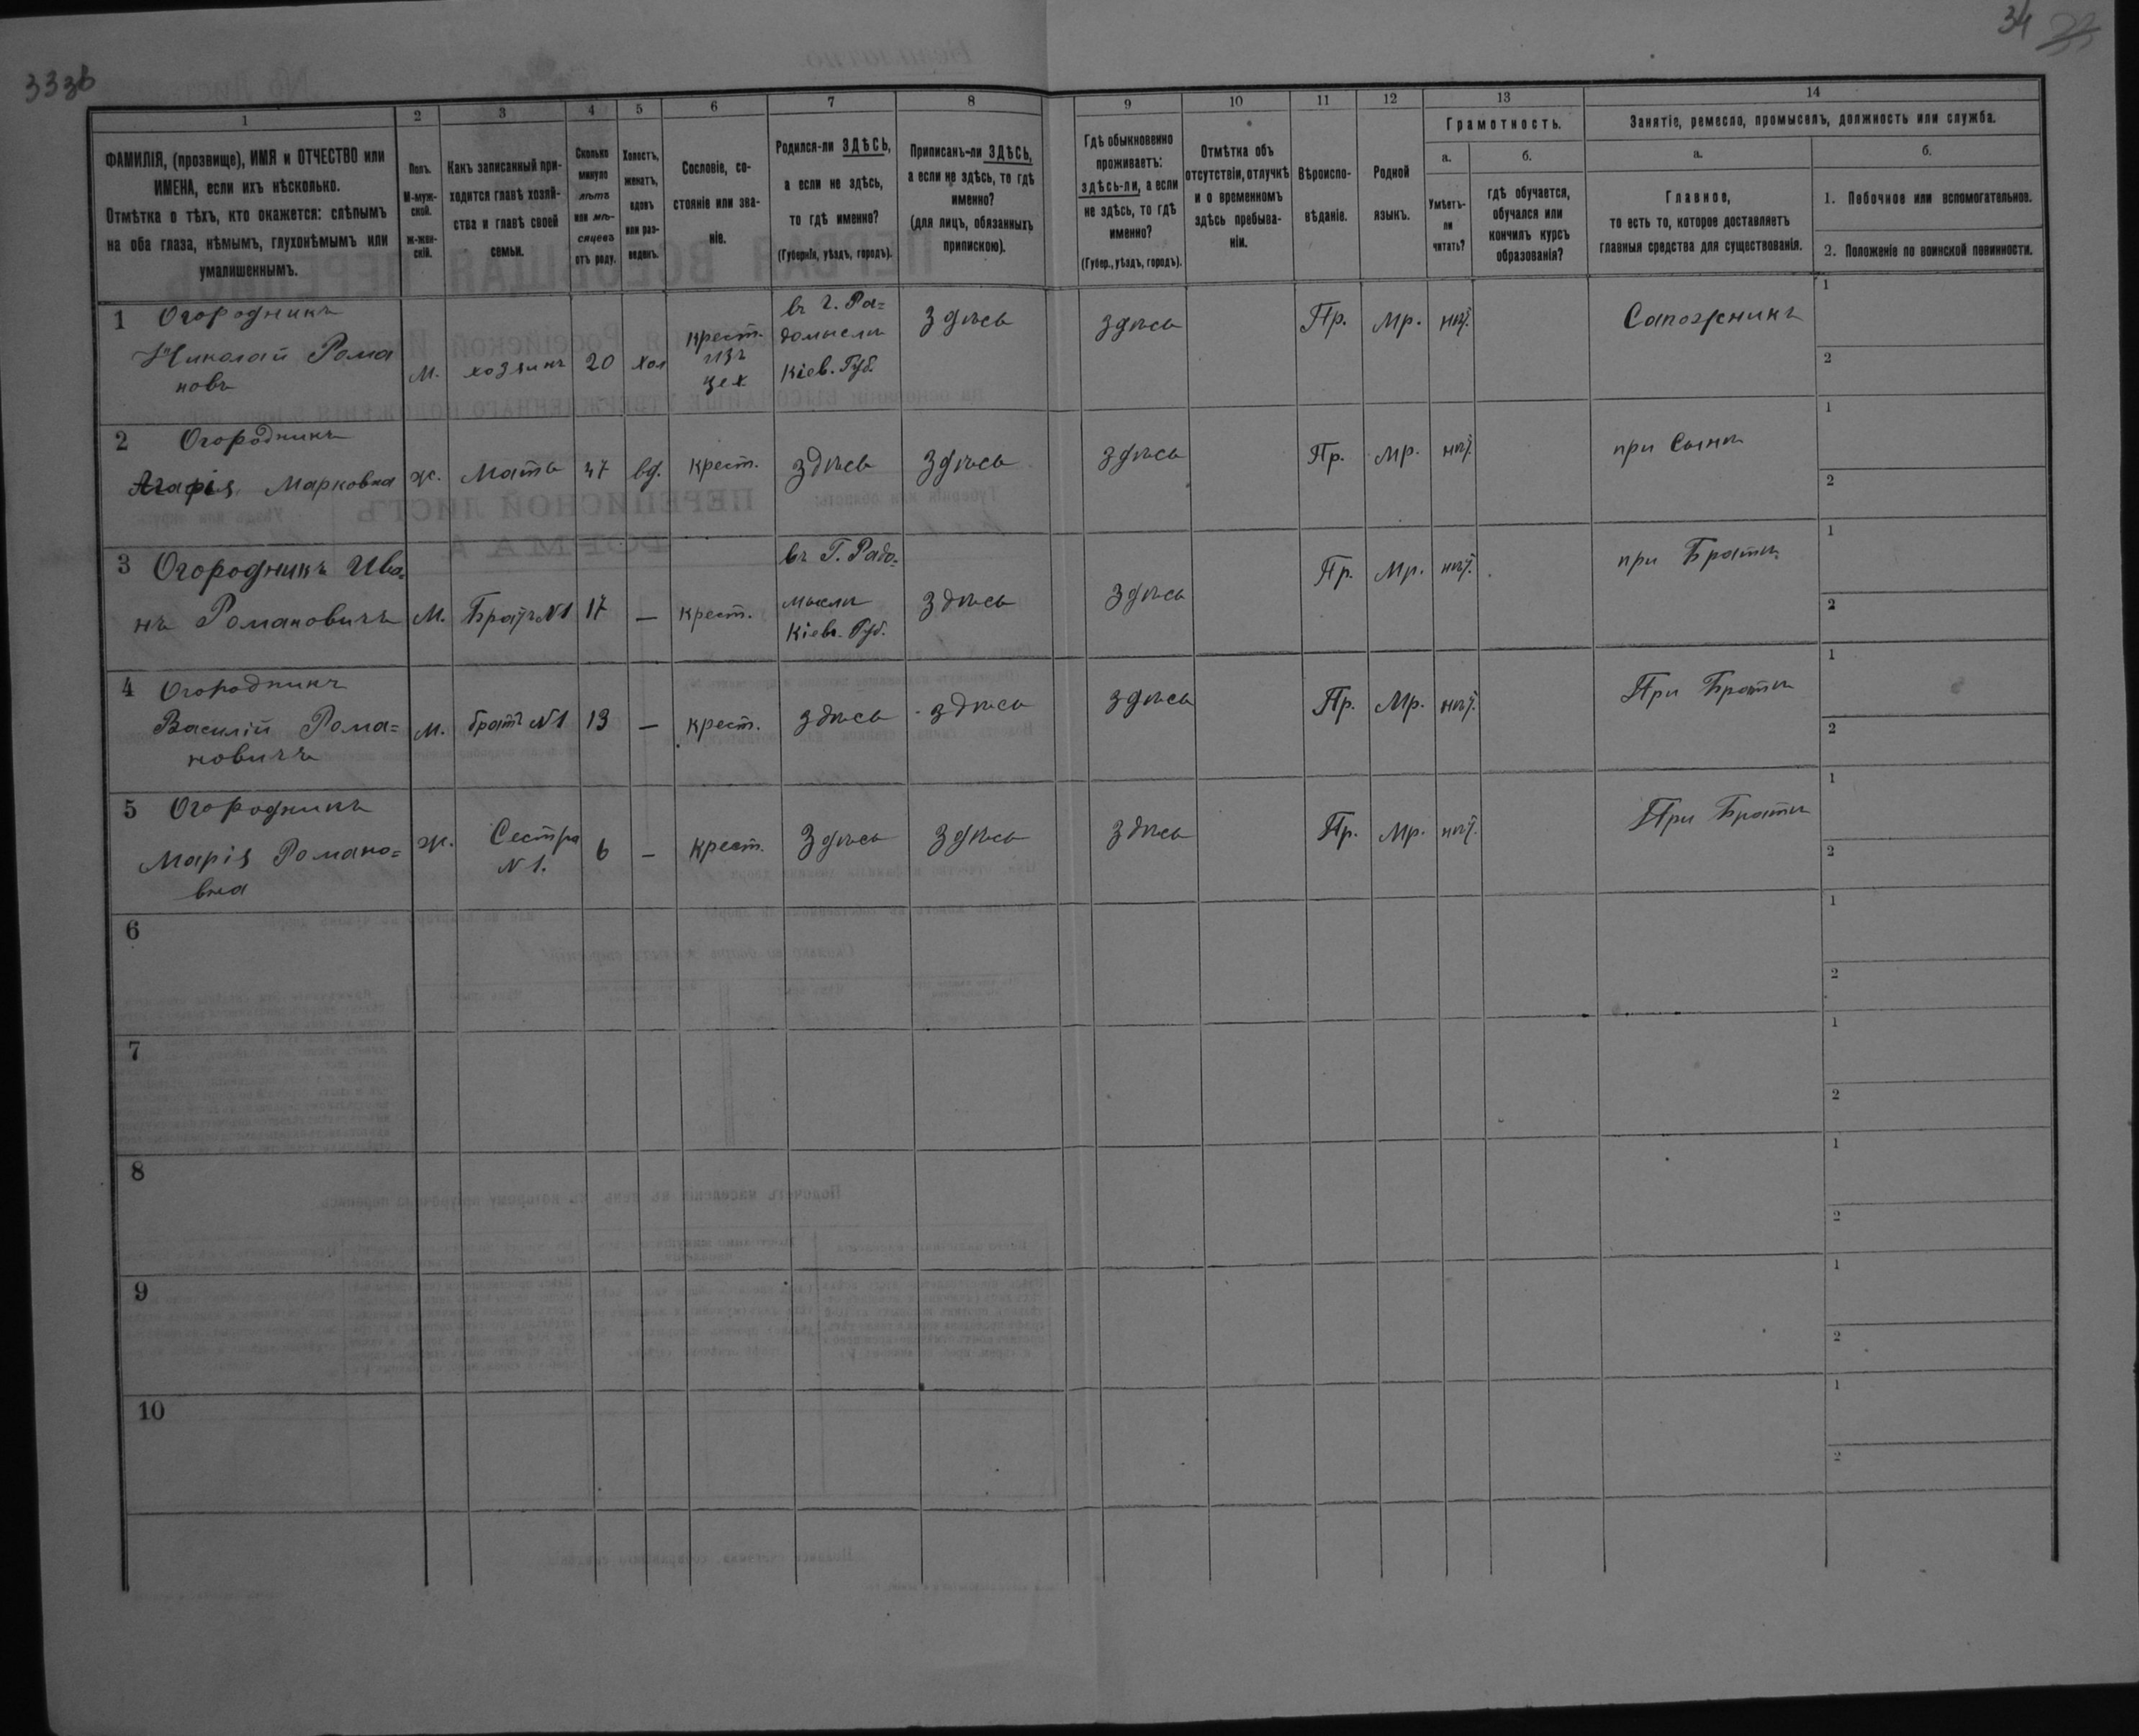 333б
34 33
1 2 3 4 5 6 7 8 9 10 11 12 13 14
ФАМИЛІЯ, (прозвище), ИМЯ и ОТЧЕСТВО или
ИМЕНА, если ихъ нѣсколько.
Отмѣтка о тѣхъ, кто окажется: слѣпымъ
на оба глаза, нѣмымъ, глухонѣмымъ или
умалишеннымъ.
Полъ.
М-муж-
ской.
Ж-жен-
скій.
Какъ записанный при-
ходится главѣ хозяй-
ства и главѣ своей
семьи.
Сколько
минуло
лѣтъ
или мѣ-
сяцевъ
отъ роду.
Холостъ,
женатъ,
вдовъ
или раз-
веденъ.
Сословіе, со-
стояніе или зва-
ніе.
Родился-ли ЗДѢСЬ,
а если не здѣсь,
то гдѣ именно?
(Губернія, уѣздъ, городъ).
Приписанъ-ли ЗДѢСЬ,
а если не здѣсь, то гдѣ
именно?
(для лицъ, обязанныхъ
припискою).
Гдѣ обыкновенно
проживаетъ:
здѣсь-ли, а если
не здѣсь, то гдѣ
именно?
(Губер., уѣздъ, городъ).
Отмѣтка объ
отсутствіи, отлучкѣ
и о временномъ
здѣсь пребыва-
ніи.
Вѣроиспо-
вѣданіе.
Родной
языкъ.
Грамотность.
а.
Умѣетъ-
ли
читать?
б.
гдѣ обучается,
обучался или
кончилъ курсъ
образованія?
Занятіе, ремесло, промыселъ, должность или служба.
а.
Главное,
то есть то, которое доставляетъ
главныя средства для существованія.
б.
1. Побочное или вспомогательное.
2. Положеніе по воинской повинности.
1 Огородникъ
Николай Рома
новъ
М. хозяинъ 20 хол
крест.
изъ
цех
въ г. Ра=
домыслѣ
Кіев. Губ.
Здѣсь здѣсь Пр. Мр. нѣт. Сапожникъ
1
2
2 Огородникъ
Агафія Марковна ж. Мать 47 вд. крест. здѣсь здѣсь здѣсь Пр. Мр. нѣт. при Сынѣ
1
2
3 Огородникъ Ива=
нъ Романовичъ М. Братъ №1 17 — крест.
въ Г. Радо=
мыслѣ
Кіев. Губ.
здѣсь здѣсь Пр. Мр. нѣт. при Братѣ
1
2
4 Огородникъ
Василій Рома=
новичъ
М. братъ №1 13 — крест. здѣсь здѣсь здѣсь Пр. Мр. нѣт. При Братѣ
1
2
5 Огородникъ
Марія Романо=
вна
ж. Сестра
№ 1.
6 — крест. Здѣсь здѣсь здѣсь Пр. Мр. нѣт. При Братѣ
1
2
6
1
2
7
1
2
8
1
2
9
1
2
10
1
2